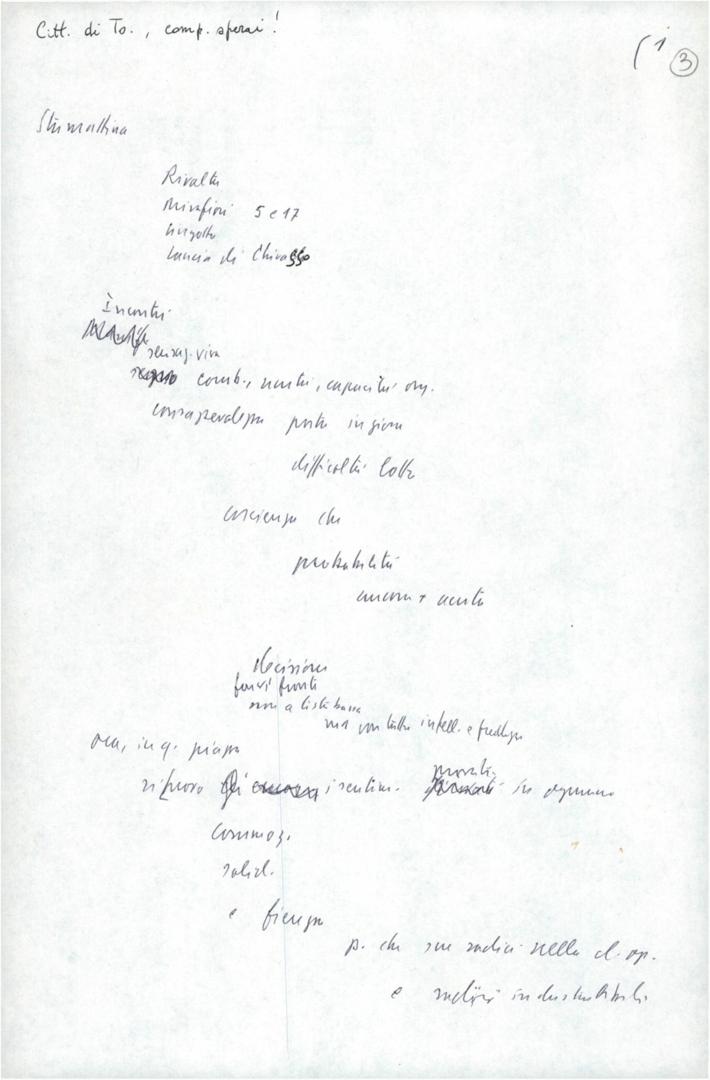 Citt. di To., comp. operai!
(1 3
Stamattina
Rivalta
Mirafiori 5 e 17
Lingotto
Lancia di Chivasso
Incontri
sensaz. viva
comb., unità, capacità org.
consapevolezza posta in gioco
difficoltà lotta
coscienza che
probabilità
ancora + acuta
decisione
farvi fronte
non a testa bassa
ma con tutta intell. e freddezza
ora, in q. piazza
ritrovo i sentim. provati in ognuno
commoz.
solid.
e fierezza
p. che sue radici nella cl. op.
e radici indistruttibili